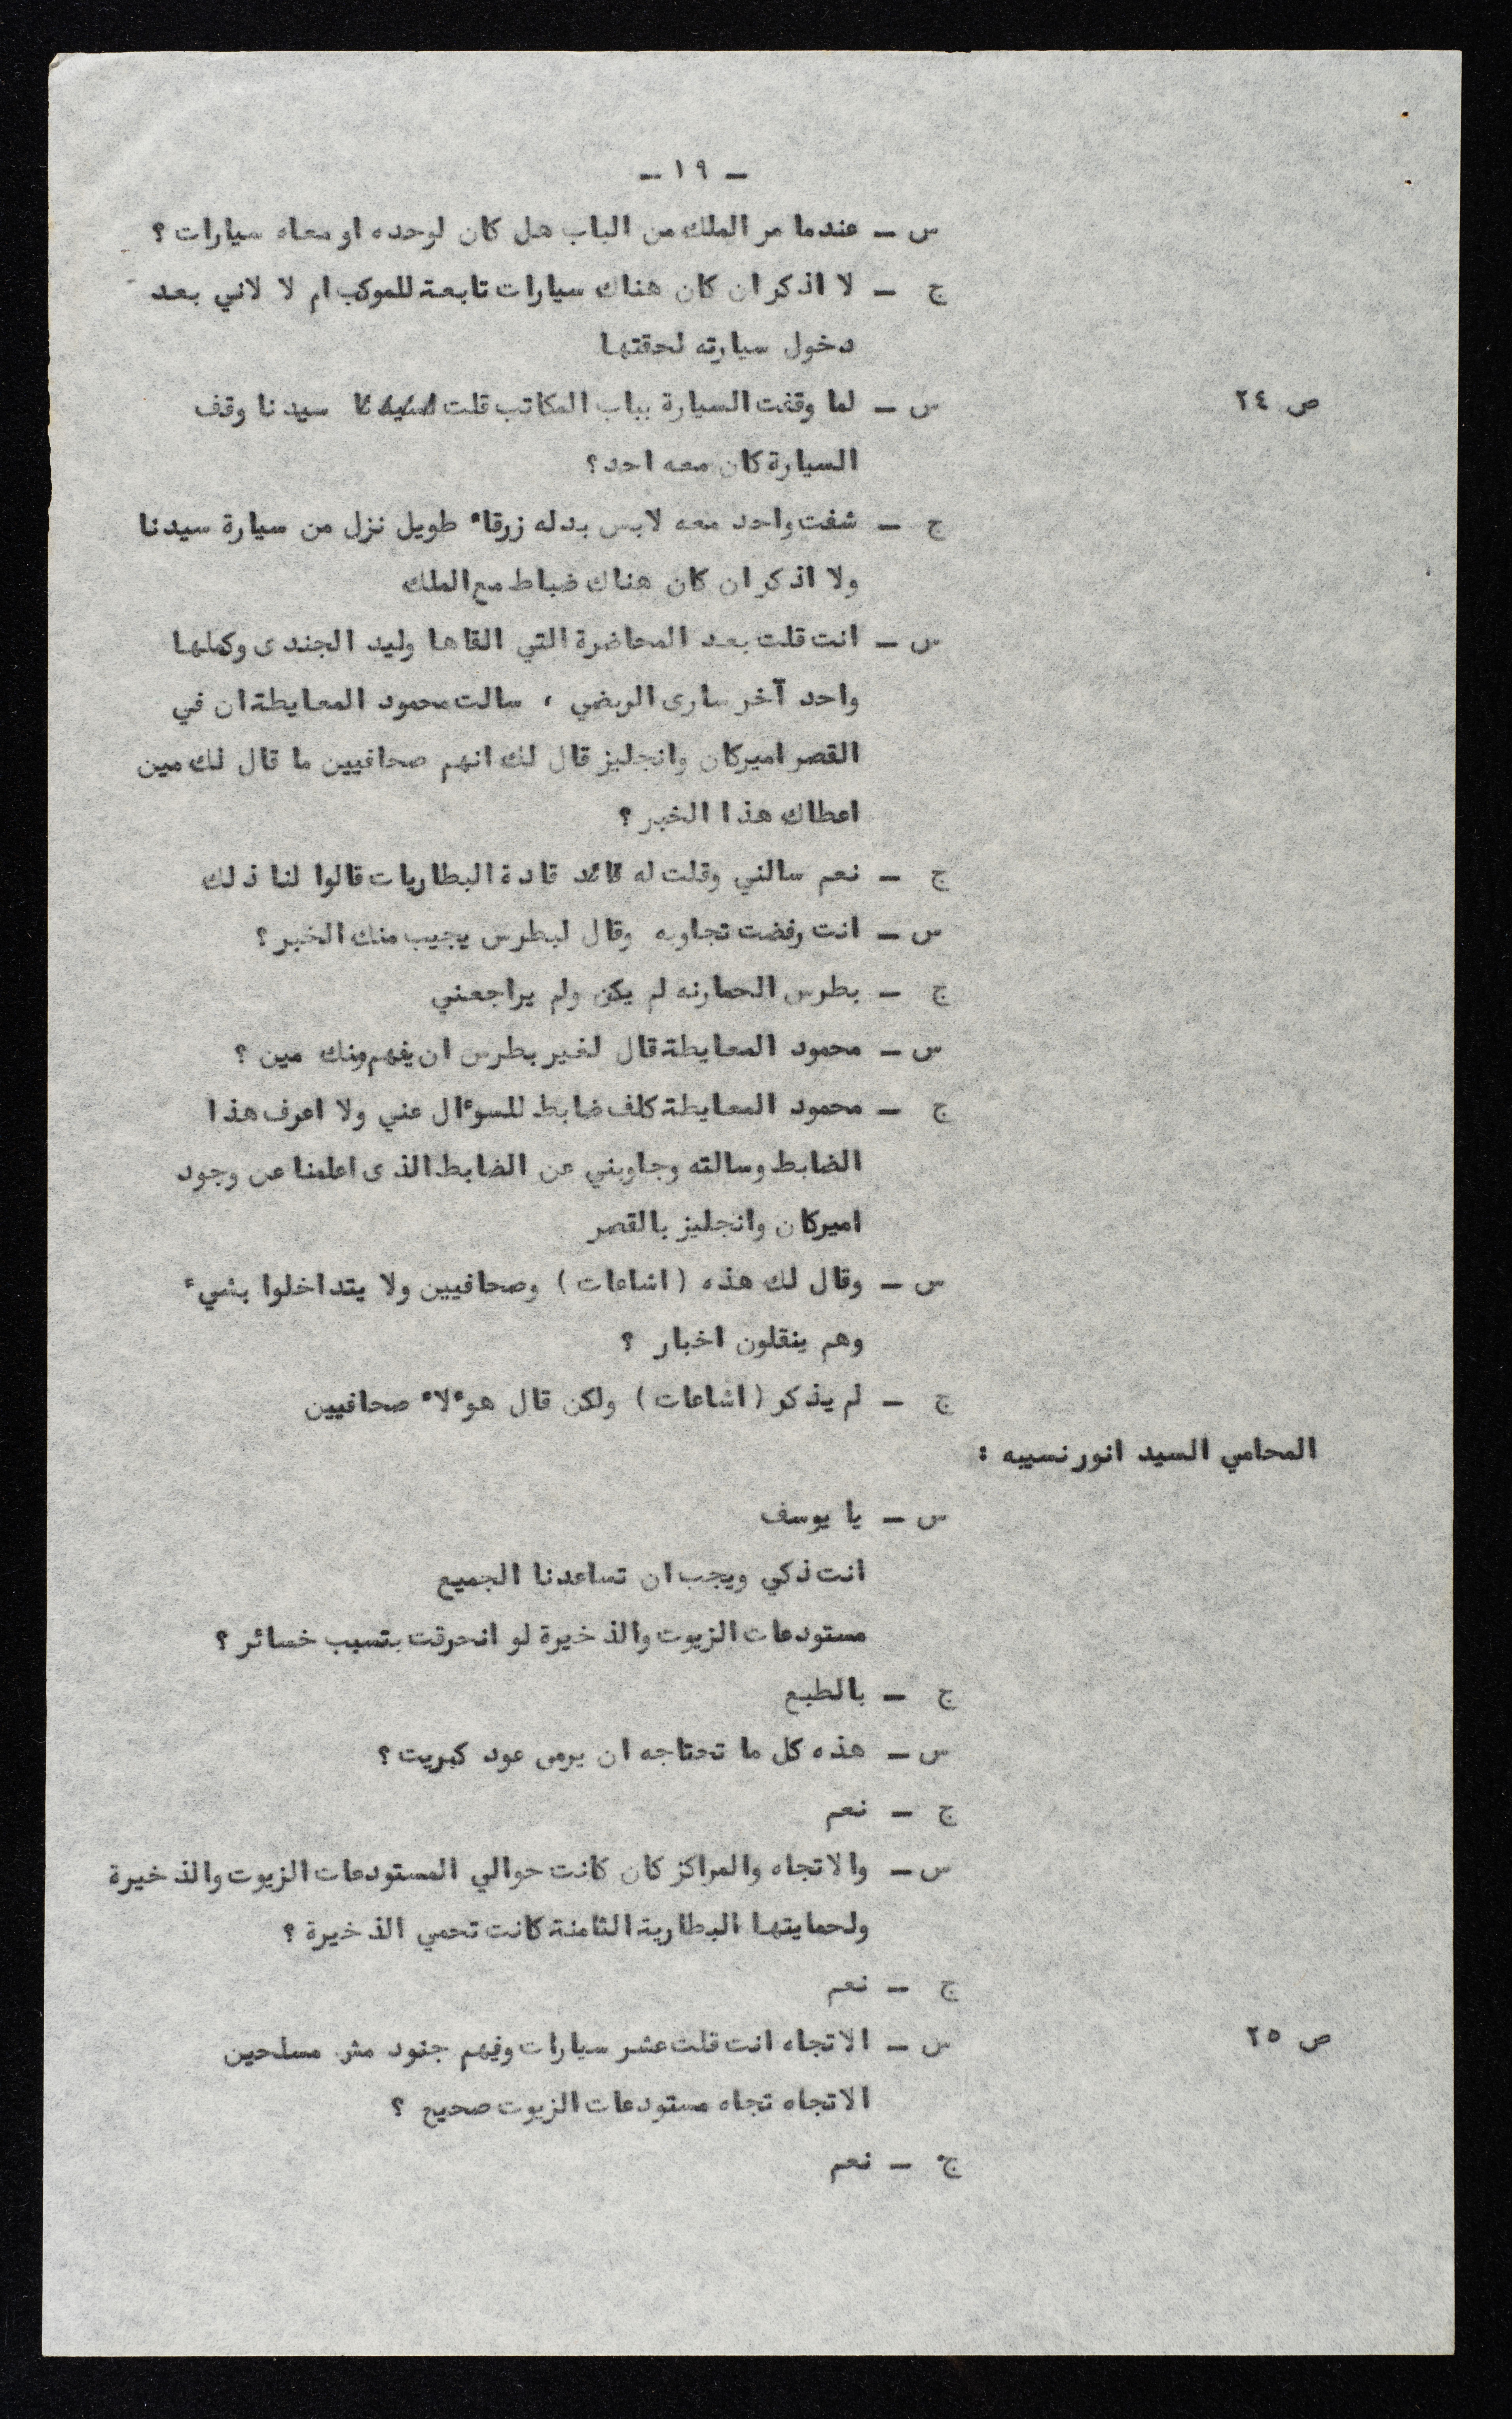 - ١٩ -
س - عندما مر الملك من الباب هل كان لوحده او معاه سيارات ؟
ج - لا اذكر ان كان هناك سيارات تابعة للموكب ام لا لاني بعد
دخول سيارته لحقتها
ص ٢٤ س - لما وقفت السيارة بباب المكاتب قلت سيدنا وقف
السيارة كان معه احد؟
ج - شفت واحد معه لابس بدله زرقاء طويل نزل من سيارة سيدنا
ولا اذكر ان كان هناك ضباط مع الملك
س - انت قلت بعد المحاضرة التي القاها وليد الجندى وكملها
واحد آخر سارى الريضي ، سالت محمود المعايطة ان في
القصر اميركان وانجليز قال لك انهم صحافيين ما قال لك مين
اعطاك هذا الخبر ؟
ج - نعم سالني وقلت له قادة البطاريات قالوا لنا ذلك
س - انت رفضت تجاوبه وقال لبطرس يجيب منك الخبر ؟
ج - بطرس الحمارنه لم يكن ولم يراجعني
س - محمود المعايطة قال لغير بطرس ان يفهم منك مين ؟
ج - محمود المعايطة كلف ضابط للسوءال عني ولا اعرف هذا
الضابط وسالته وجاوبني عن الضابط الذى اعلمنا عن وجود
اميركان وانجليز بالقصر
س - وقال لك هذه (اشاعات) وصحافيين ولا يتداخلوا بشيء
وهم ينقلون اخبار ؟
ج - لم يذكر (اشاعات) ولكن قال هوءلاء صحافيين
المحامي السيد انور نسيبه :
س - يا يوسف
انت ذكي ويجب ان تساعدنا الجميع
مستودعات الزيوت والذخيرة لو انحرقت بتسبب خسائر ؟
ج - بالطبع
س - هذه كل ما تحتاجه ان يرمى عود كبريت ؟
ج - نعم
س - والاتجاه والمراكز كان كانت حوالي المستودعات الزيوت والذخيرة
ولحمايتها البطارية الثامنة كانت تحمي الذخيرة ؟
ج - نعم
ص ٢٥ س - الاتجاه انت قلت عشر سيارات وفيهم جنود مش مسلحين
الاتجاه تجاه مستودعات الزيوت صحيح ؟
ج - نعم